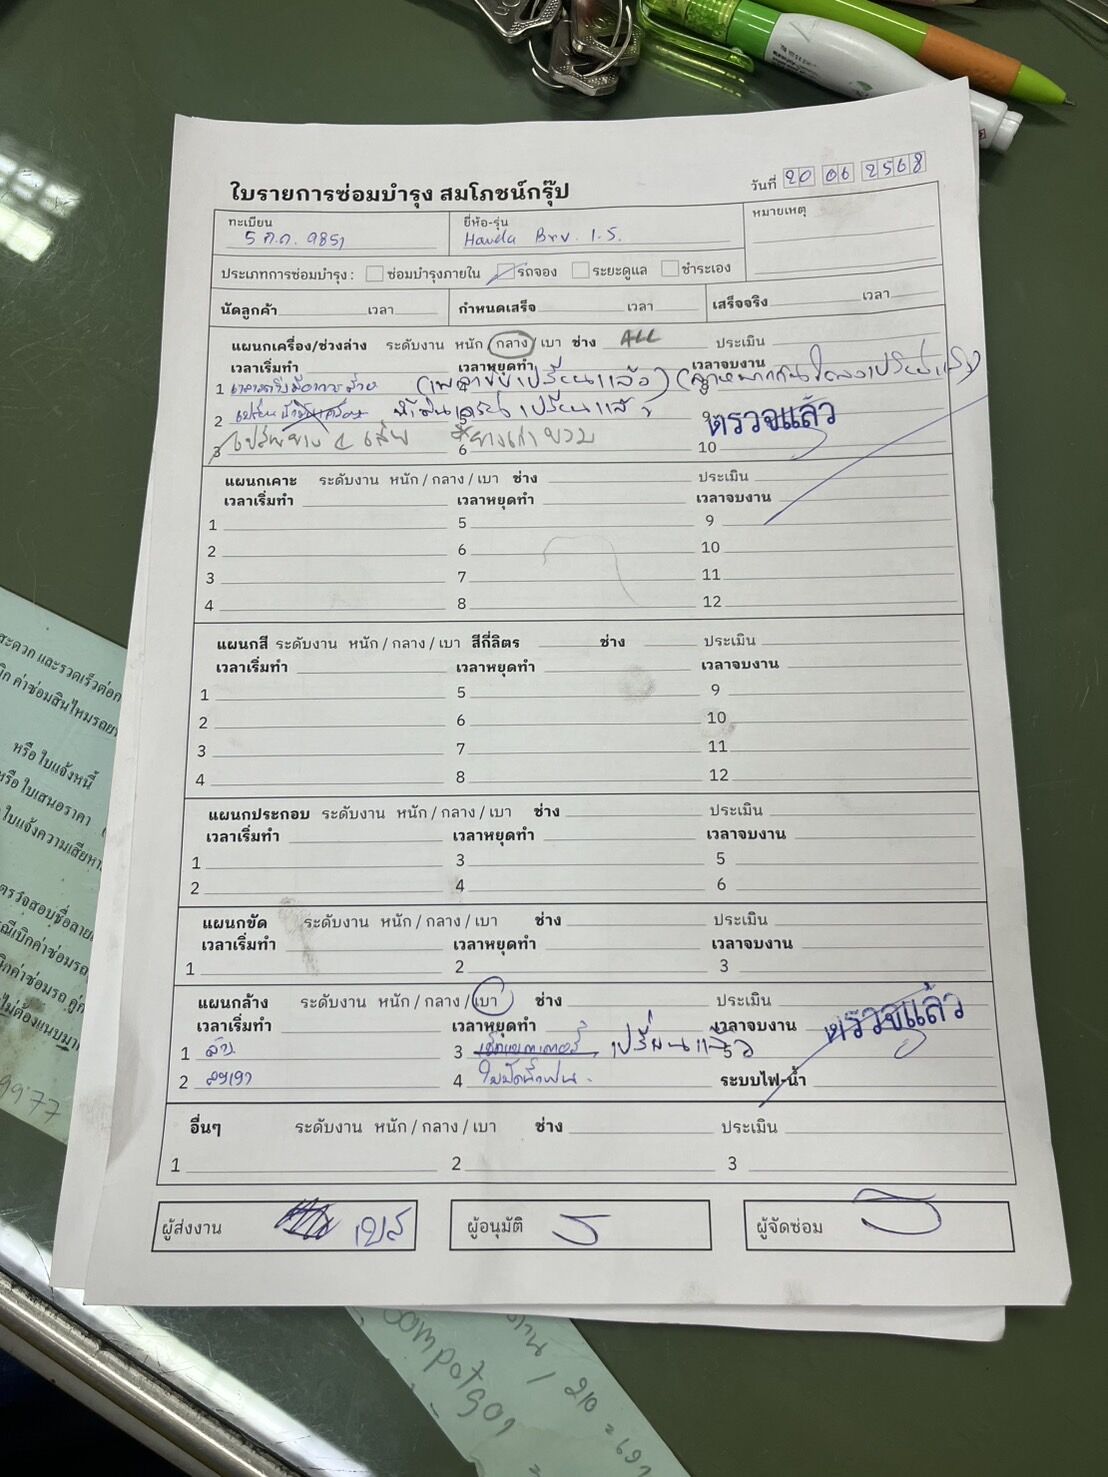 ใบรายการซ่อมบำรุง สมโภชน์กรุ๊ป
วันที่ 20 06 2568
ทะเบียน
5 ก.ด. 9851
ยี่ห้อ-รุ่น
Honda Brv. 1.5.
หมายเหตุ
ประเภทการซ่อมบำรุง : ซ่อมบำรุงภายใน รถจอง ระยะดูแล ชำระเอง
นัดลูกค้า เวลา กำหนดเสร็จ เวลา เสร็จจริง เวลา
แผนกเครื่อง/ช่วงล่าง ระดับงาน หนัก กลาง / เบา ช่าง ALL ประเมิน
เวลาเริ่มทำ เวลาหยุดทำ เวลาจบงาน
1 (เพลาขับเปลี่ยนแล้ว)
2 เปลี่ยนน้ำมันเครื่อง เปลี่ยนแล้ว ตรวจแล้ว
3 เปลี่ยนยาง 4 เส้น 6 *ยางเก่าบวม 10
แผนกเคาะ ระดับงาน หนัก / กลาง / เบา ช่าง ประเมิน
เวลาเริ่มทำ เวลาหยุดทำ เวลาจบงาน
1 5 9
2 6 10
3 7 11
4 8 12
แผนกสี ระดับงาน หนัก / กลาง / เบา สีกี่ลิตร ช่าง ประเมิน
เวลาเริ่มทำ เวลาหยุดทำ เวลาจบงาน
1 5 9
2 6 10
3 7 11
4 8 12
แผนกประกอบ ระดับงาน หนัก / กลาง / เบา ช่าง ประเมิน
เวลาเริ่มทำ เวลาหยุดทำ เวลาจบงาน
1 3 5
2 4 6
แผนกขัด ระดับงาน หนัก / กลาง / เบา ช่าง ประเมิน
เวลาเริ่มทำ เวลาหยุดทำ เวลาจบงาน
1 2 3
แผนกล้าง ระดับงาน หนัก / กลาง / เบา ช่าง ประเมิน
เวลาเริ่มทำ เวลาหยุดทำ เวลาจบงาน ตรวจแล้ว
1 ล้าง 3 เช็คแบตเตอรี่ เปลี่ยนแล้ว 5
2 4 ใบปัดน้ำฝน ระบบไฟ-น้ำ
อื่นๆ ระดับงาน หนัก / กลาง / เบา ช่าง ประเมิน
1 2 3
ผู้ส่งงาน
ผู้อนุมัติ
ผู้จัดซ่อม
หรือ ใบแจ้งหนี้
หรือ ใบเสนอราคา